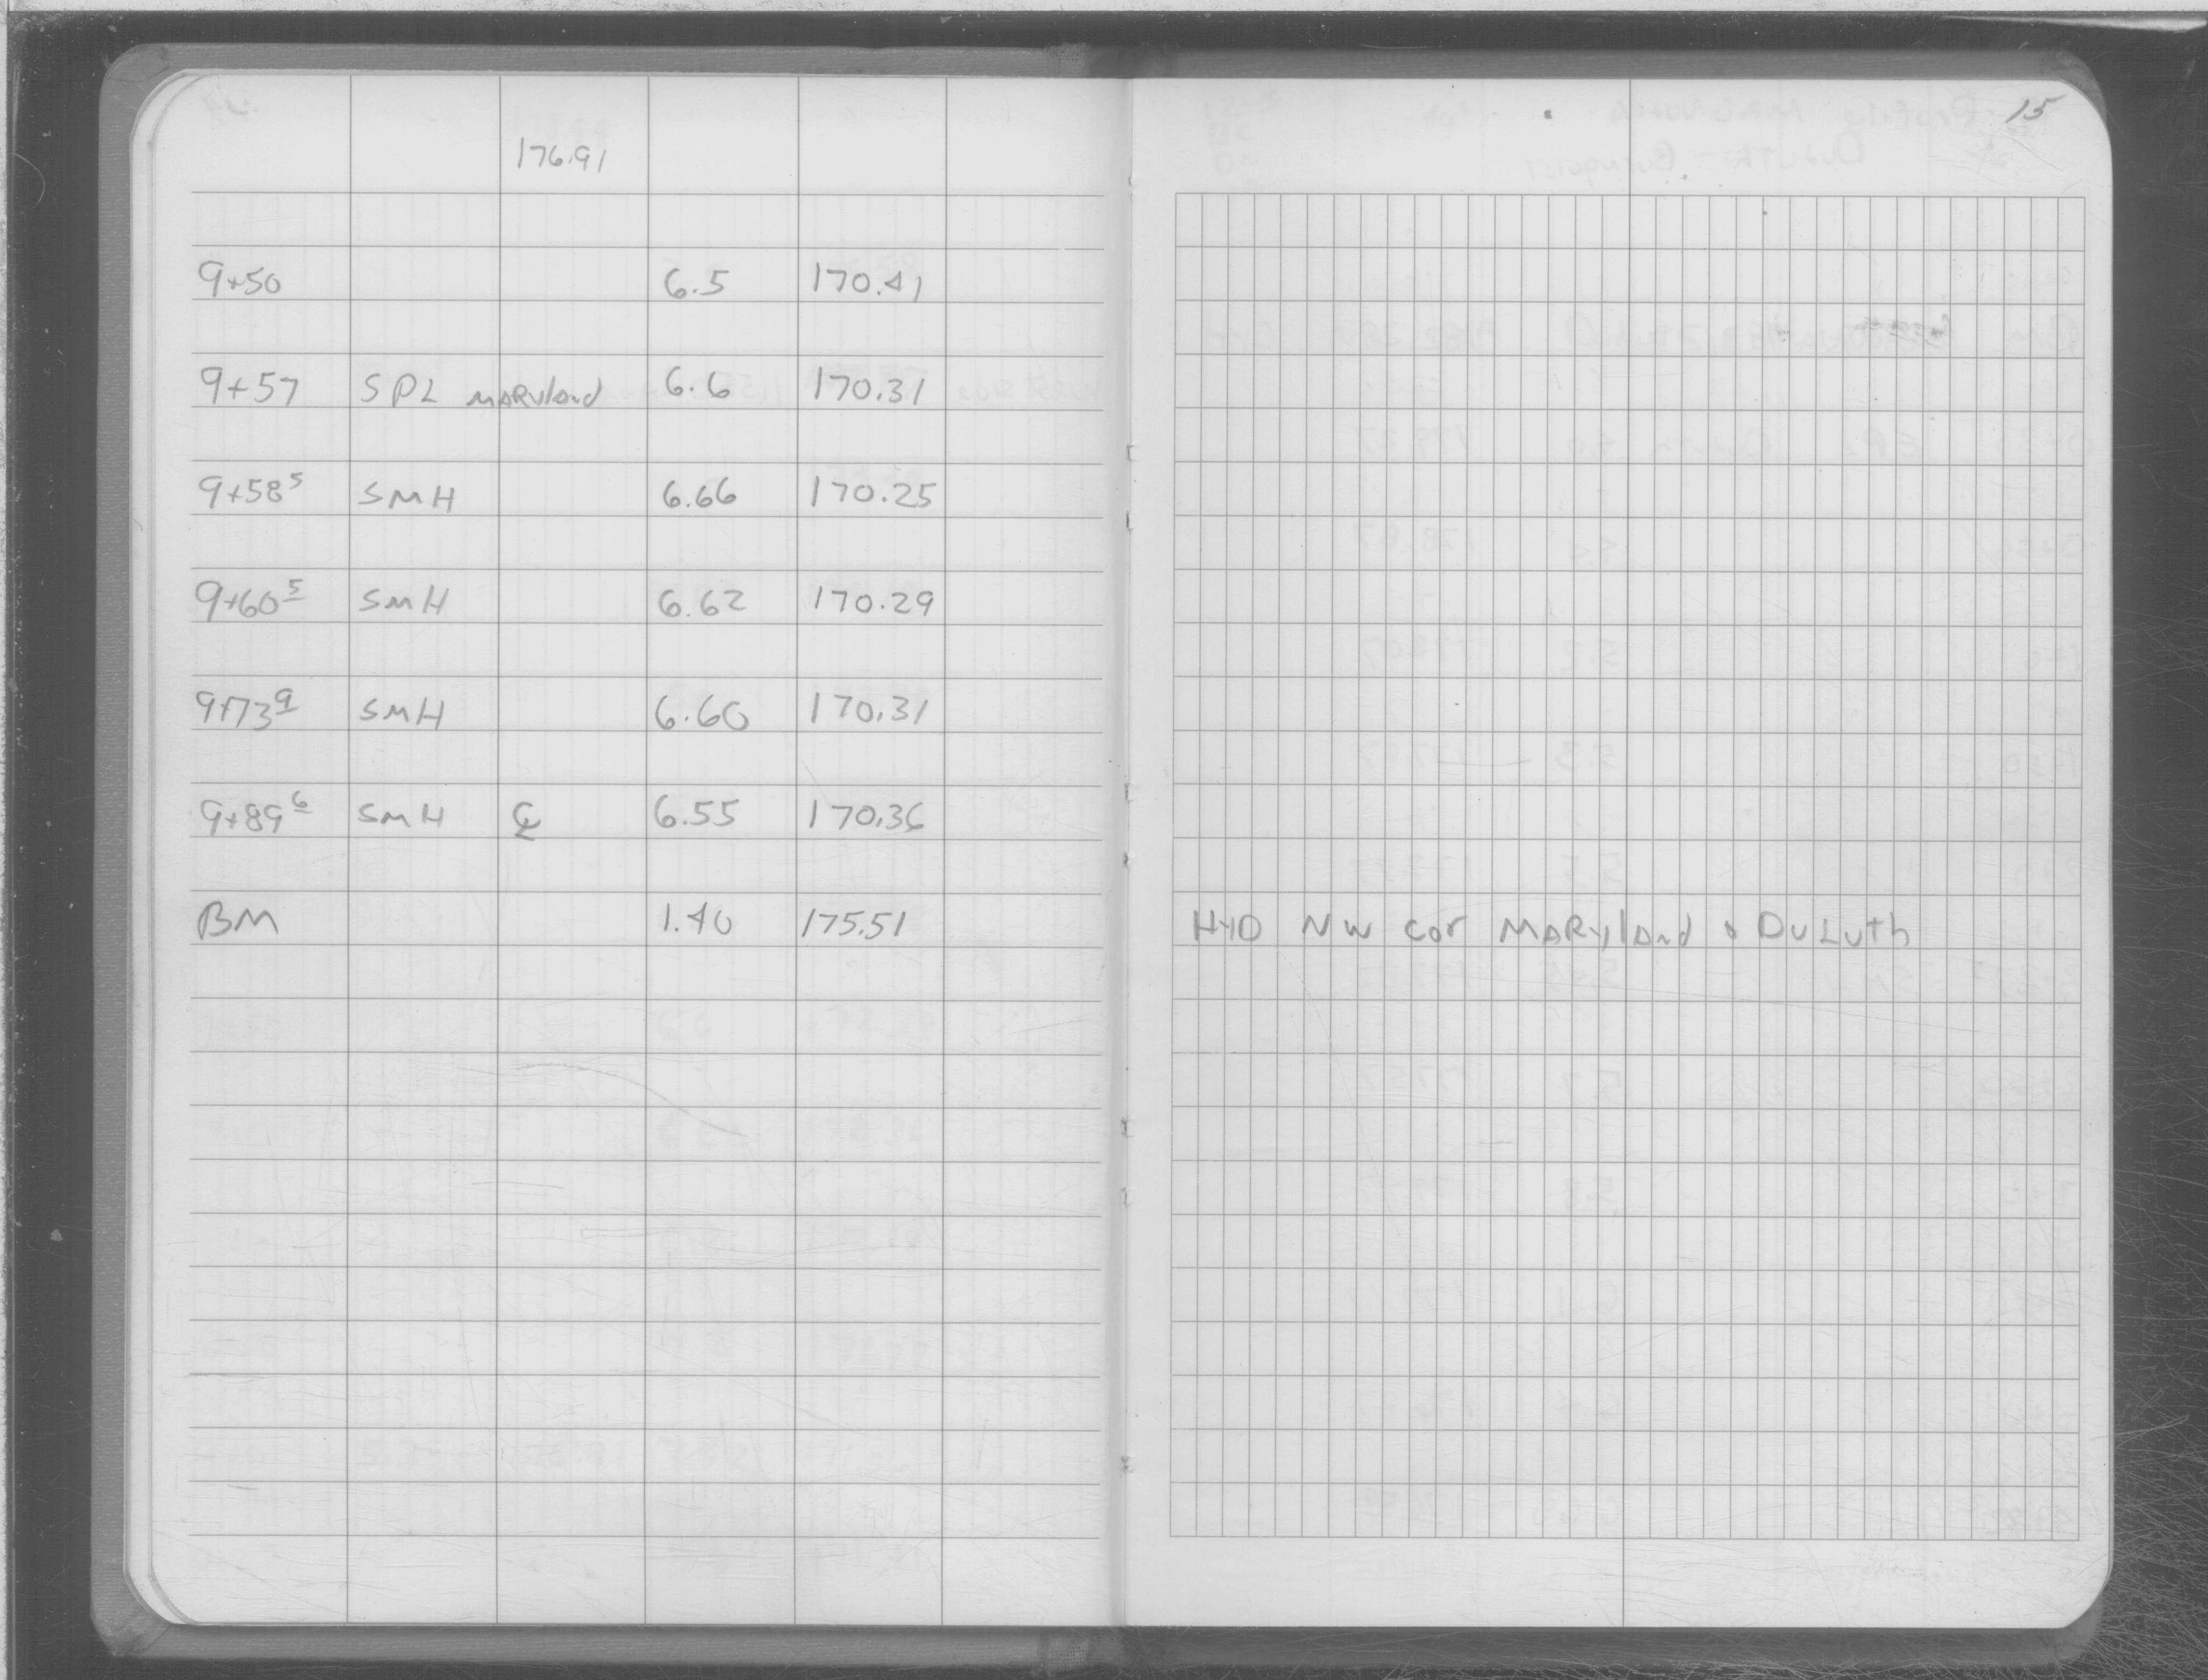 15
176.91
9+50 6.5 170.41
9+57 SPL MARYland 6.6 170.31
9+58⁵ SMH 6.66 170.25
9+60⁵ SMH 6.62 170.29
9+73⁹ SMH 6.60 170.31
9+89⁶ SMH ℄ 6.55 170.36
BM 1.40 175.51 HYD NW cor MARYland & DuLuth